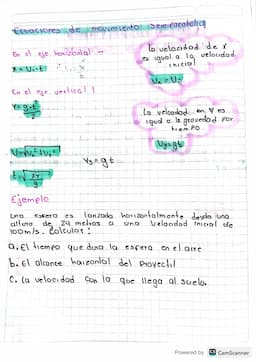 Ecuaciones de movimiento semiparabolico
En el eje horizontal →
x = V₀·t
La velocidad de x
es igual a la velocidad
inicial
Vₓ = V₀
En el eje vertical ↓
Y = g·t²
2
La velocidad en Y es
igual a la gravedad por
tiempo
Vy = gt
V = √Vₓ² + Vy²
Vy = gt
t = √2Y
g
Ejemplo
Una esfera es lanzada horizontalmente desde una
altura de 24 metros a una velocidad inicial de
100m/s. Calcular:
a. El tiempo que dura la esfera en el aire
b. El alcance horizontal del proyectil
C. La velocidad con la que llega al suelo.
Powered by CS CamScanner